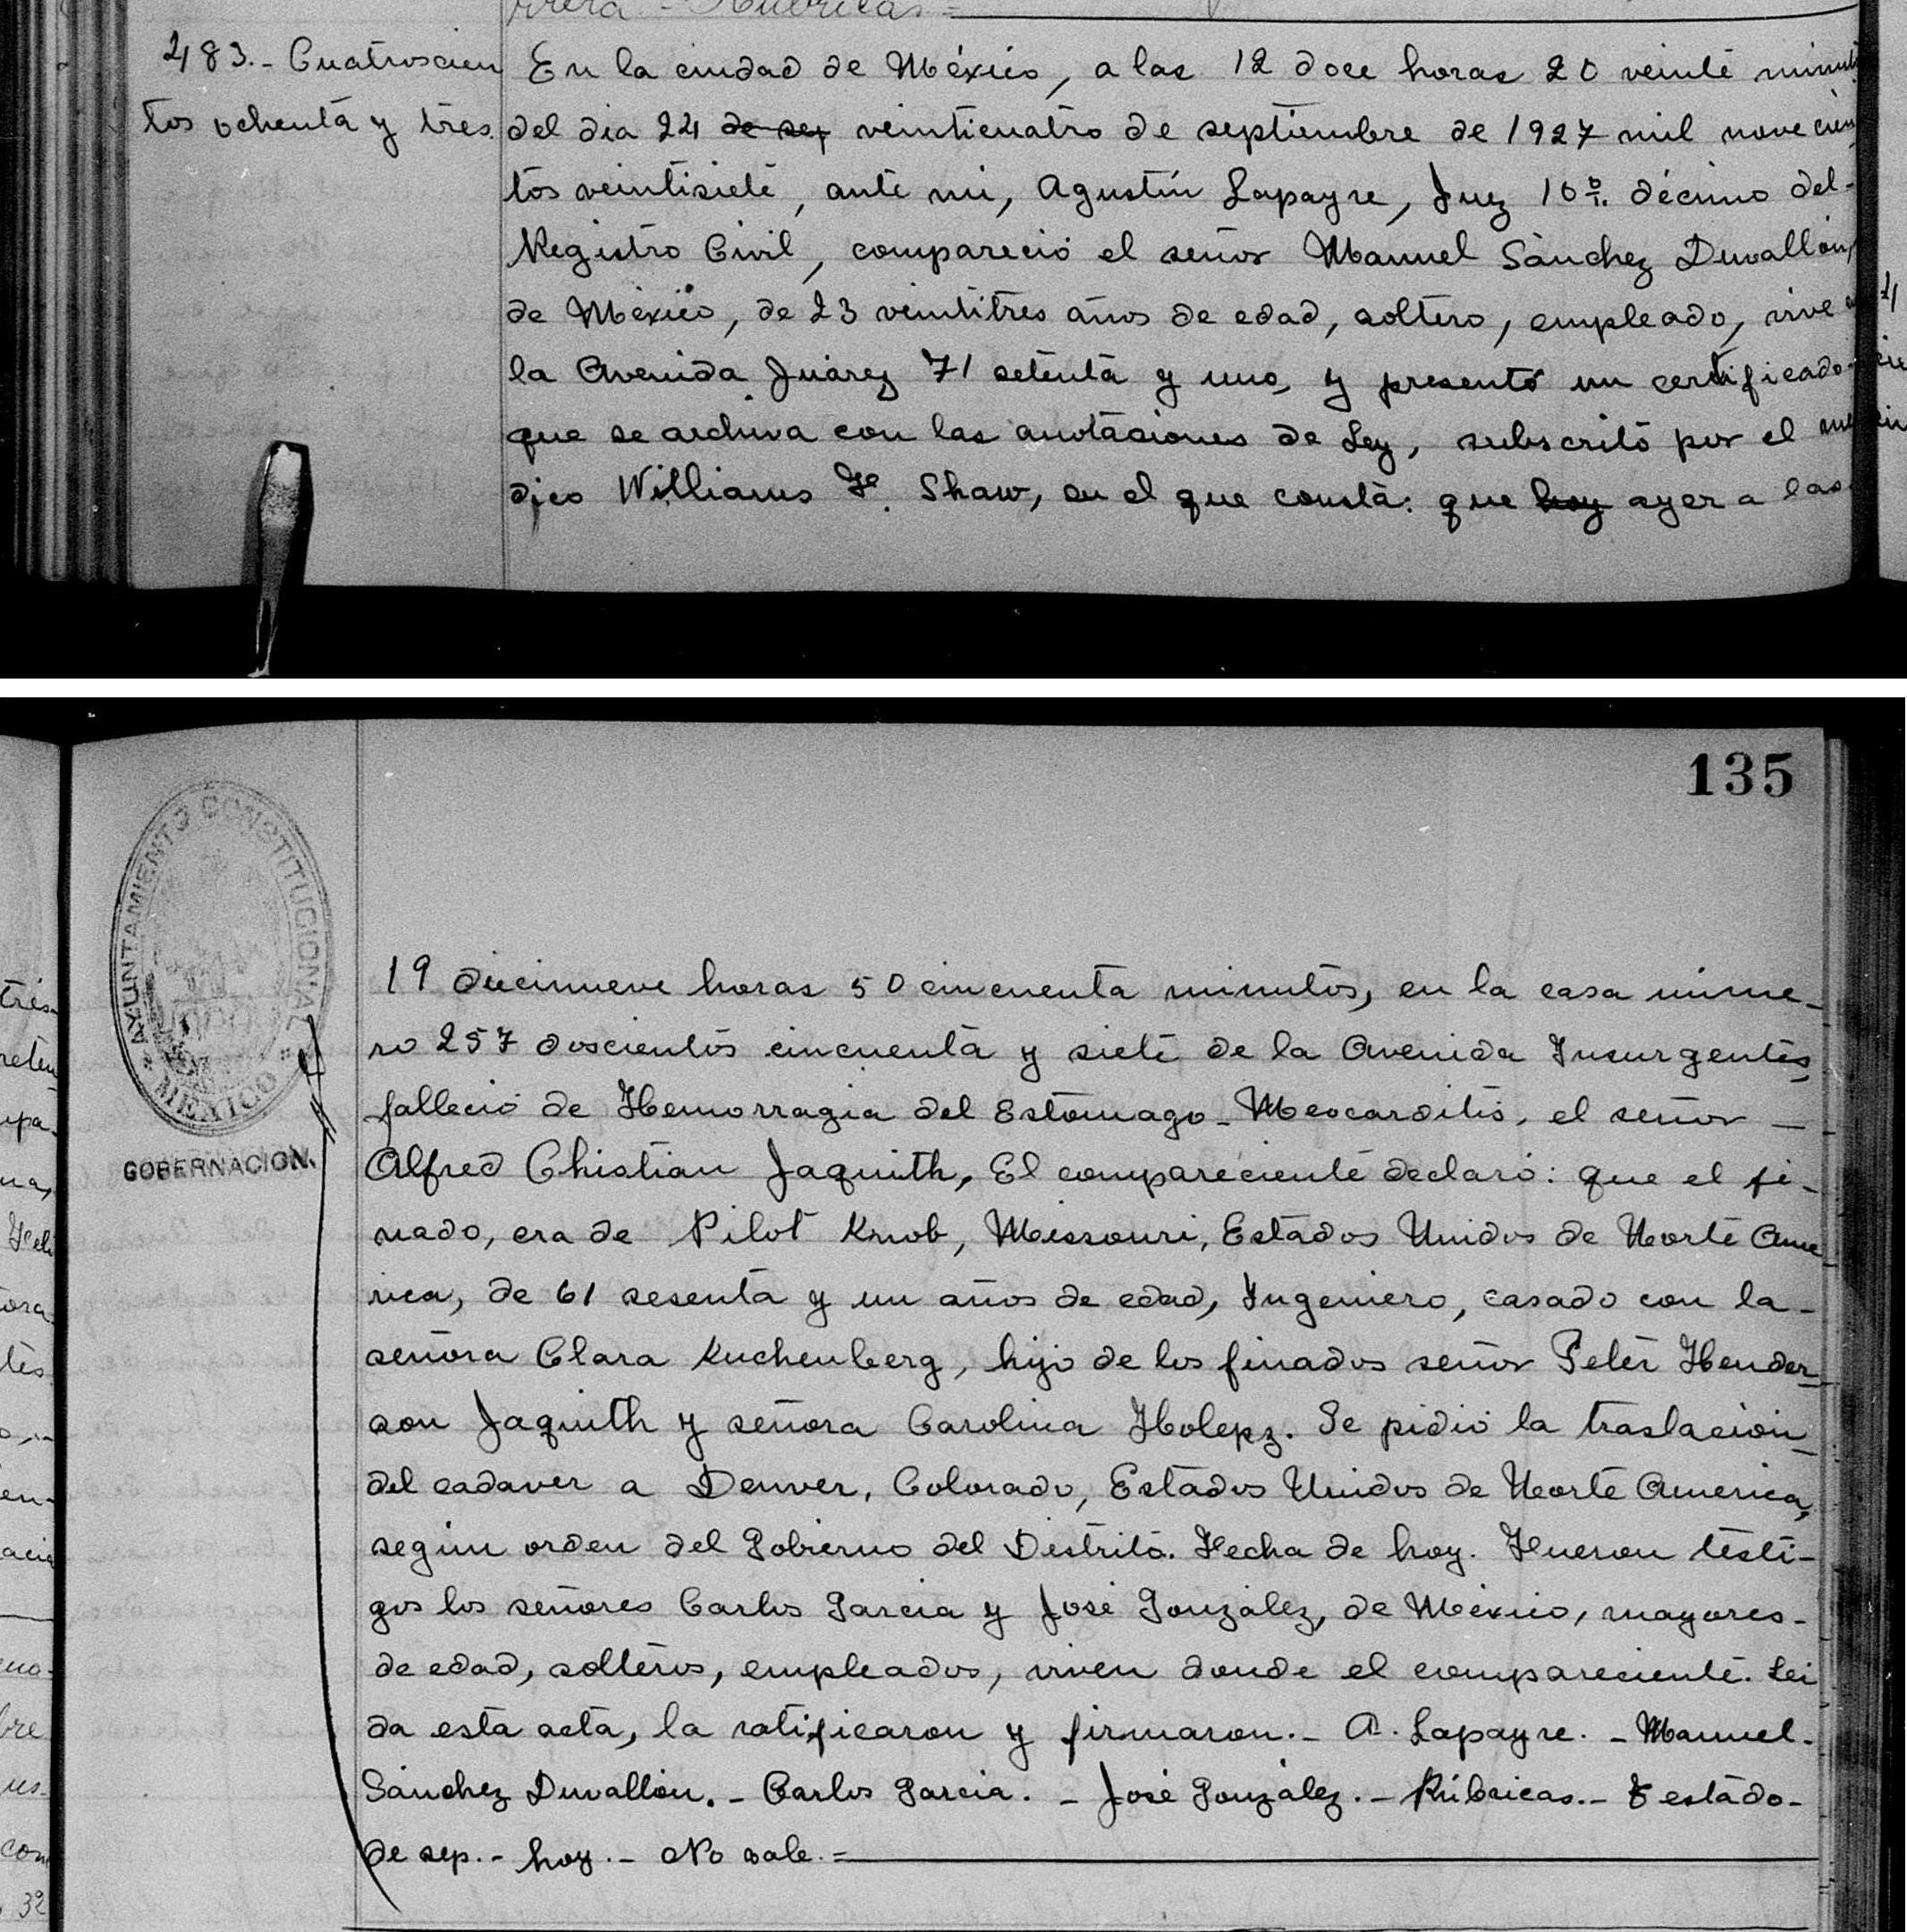 483.- Cuatroscien
tos ochenta y tres.
En la ciudad de México, a las 12 doce horas 20 veinte minut
del dia 24 de sep veinticuatro de septiembre de 1927 mil novecien
tos veintisiete, ante mi, Agustín Lapayre, Juez 10º. décimo del-
Registro Civil, compareció el señor Manuel Sánchez Duvallón,
de México, de 23 veintitres años de edad, soltero, empleado, vive en
la Avenida Juárez 71 setenta y uno, y presentó un certificado-
que se archiva con las anotaciones de Ley, subscrito por el mé
dico Williams F. Shaw, en el que consta: que hoy ayer a las
135
AYUNTAMIENTO CONSTITUCIONAL
MEXICO
GOBERNACION.
19 diecinueve horas 50 cincuenta minutos, en la casa núme-
ro 257 doscientos cincuenta y siete de la Avenida Insurgentes,
falleció de Hemorragia del Estomago - Meocarditis, el señor -
Alfred Chistian Jaquith, El compareciente declaró: que el fi-
nado, era de Pilot Knob, Missouri, Estados Unidos de Norte Ame
rica, de 61 sesenta y un años de edad, Ingeniero, casado con la-
señora Clara Kuchenberg, hijo de los finados señor Peter Hender_
son Jaquith y señora Carolina Holepz. Se pidió la traslación_
del cadaver a Denver, Colorado, Estados Unidos de Norte America,
según orden del Gobierno del Distrito. Fecha de hoy. Fueron testi-
gos los señores Carlos García y José González, de México, mayores-
de edad, solteros, empleados, viven donde el compareciente. Lei
da esta acta, la ratificaron y firmaron.- A. Lapayre. - Manuel-
Sánchez Duvallón. - Carlos García. - José González. - Rúbricas.- Testado-
de sep. - hoy. - No vale. =